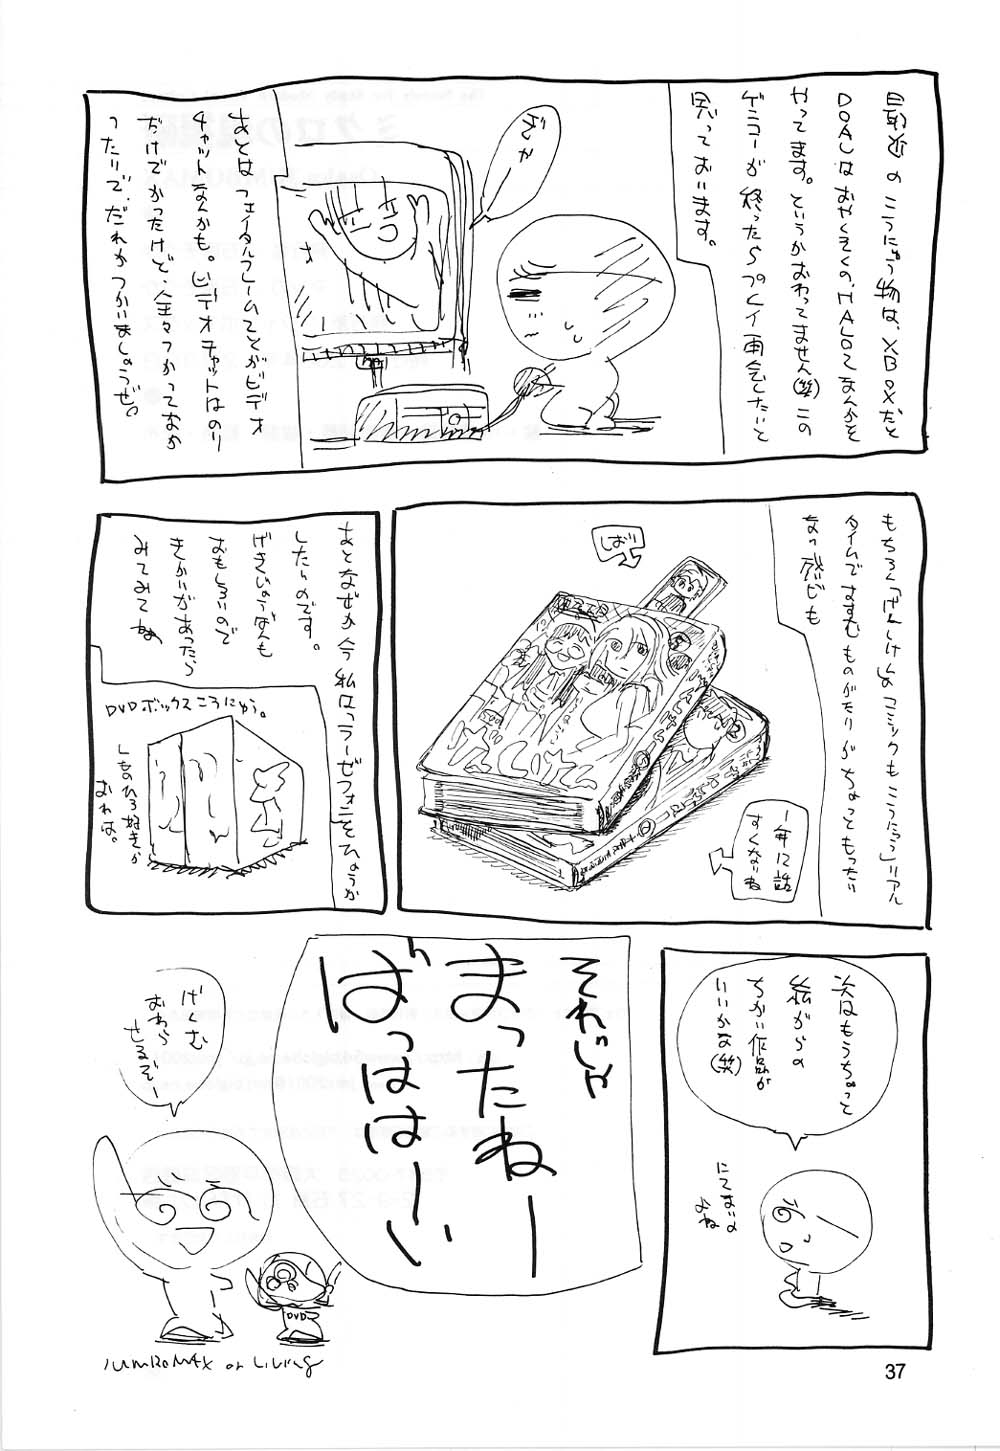 最近のこうにゅう物は、XBOXだと
DOAUはおやくそく、HALOてなんかを
やってます。というかおわってません(笑)この
ゲンコーが終ったらプレイ再会したいと
思っております。
げんか
あとはフェイタルフレームてとかビデオ
チャットなんかも。ビデオチャットはのり
だけでかったけど、全々つかっておか
ったりで、だれかつかいましょうぜ。
もちろん「げんしけん」のコミックもこうにゅう」リアル
タイムですすむものがたりがちょっともったい
ない感じも
しおり
1年12話
すくないね
あとなぜか今私はラーゼフォンをひょうか
したいのです。
げきじょうばんも
おもしろいので
きかいがあったら
みてみてね
DVDボックスこうにゅう。
しものひろ好きか
おれは。
次はもうちょっと
絵がらの
ちかい作品が
いいかな(笑)
にてないよ
なね
それじゃ
まったねー
ばっははーい
げーむ
おわら
せるぞー
DVD
JUMROMAX or Living
37